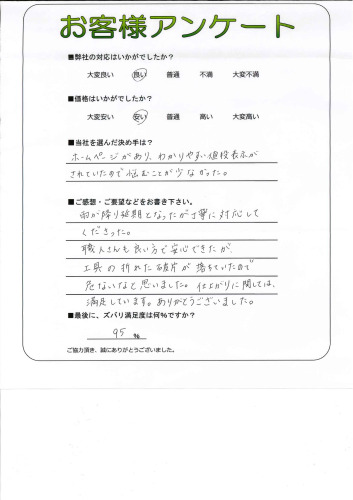 お客様アンケート
■弊社の対応はいかがでしたか？
大変良い 良い 普通 不満 大変不満
■価格はいかがでしたか？
大変安い 安い 普通 高い 大変高い
■当社を選んだ決め手は？
ホームページがあり、わかりやすい値段表示が
されていたので悩むことが少なかった。
■ご感想・ご要望などをお書き下さい。
雨が降り延期となったが丁寧に対応して
くださった。
職人さんも良い方で安心できたが、
工具の折れた破片が落ちていたので
危ないなと思いました。仕上がりに関しては、
満足しています。ありがとうございました。
■最後に、ズバリ満足度は何%ですか？
95 %
ご協力頂き、誠にありがとうございました。